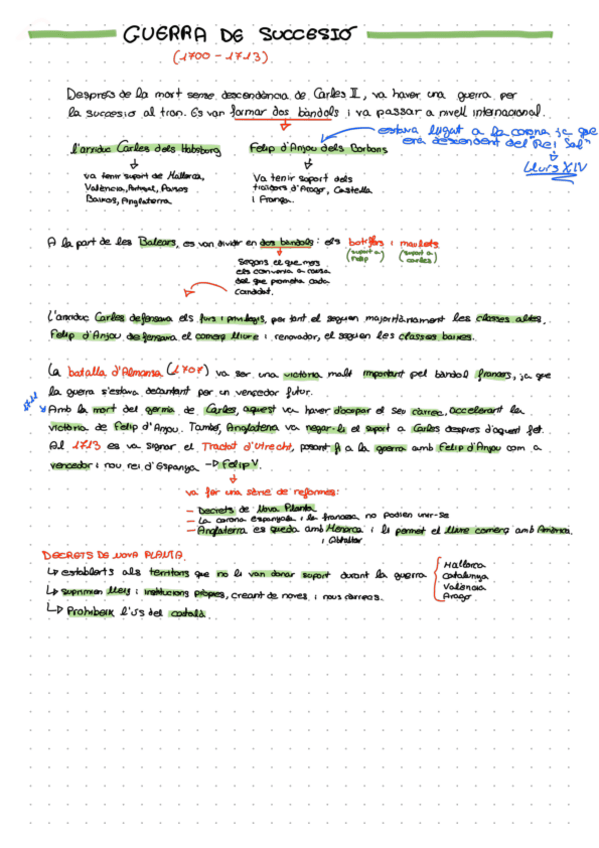 GUERRA DE SUCCESIÓ
(1700 - 1713)
Després de la mort sense descendència de Carles II, va haver una guerra per
la successió al tron. Es van formar dos bàndols i va passar a nivell internacional.
estava lligat a la corona ja que
era descendent del "Rei Sol"
Lluís XIV
l'arxiduc Carles dels Habsburg
Felip d'Anjou dels Borbons
va tenir suport de Mallorca,
València, Portugal, Països
Baixos, Anglaterra
Va tenir suport dels
d'Aragó, Castella
i França.
A la part de les Balears, es van dividir en dos bàndols: els botiflers i maulets
(suport a Felip)
(suport a Carles)
Segons el que mes
els convenia a causa
del que prometia cada
candidat.
L'arxiduc Carles defensava els furs i privilegis, per tant el seguien majoritàriament les classes altes,
Felip d'Anjou defensava el comerç lliure i renovador, el seguien les classes baixes.
La batalla d'Almansa (1707) va ser una victòria molt important pel bàndol francès, ja que
la guerra s'estava decantant per un vencedor futur.
1711
Amb la mort del germà de Carles, aquest va haver d'ocupar el seu càrrec, accelerant la
victòria de Felip d'Anjou. També, Anglaterra va negar-li el suport a Carles després d'aquest fet.
Al 1713 es va signar el Tractat d'Utrecht, posant fi a la guerra amb Felip d'Anjou com a
vencedor i nou rei d'Espanya → Felip V.
va fer una sèrie de reformes:
- Decrets de Nova Planta
- La corona espanyola i la francesa no podien unir-se
- Anglaterra es queda amb Menorca i li permet el lliure comerç amb Amèrica.
i Gibraltar
DECRETS DE NOVA PLANTA.
↳ establerts als territoris que no li van donar suport durant la guerra
Mallorca
Catalunya
València
Aragó
↳ suprimien lleis i institucions pròpies, creant de noves i nous càrrecs.
↳ Prohibeix l'ús del català.